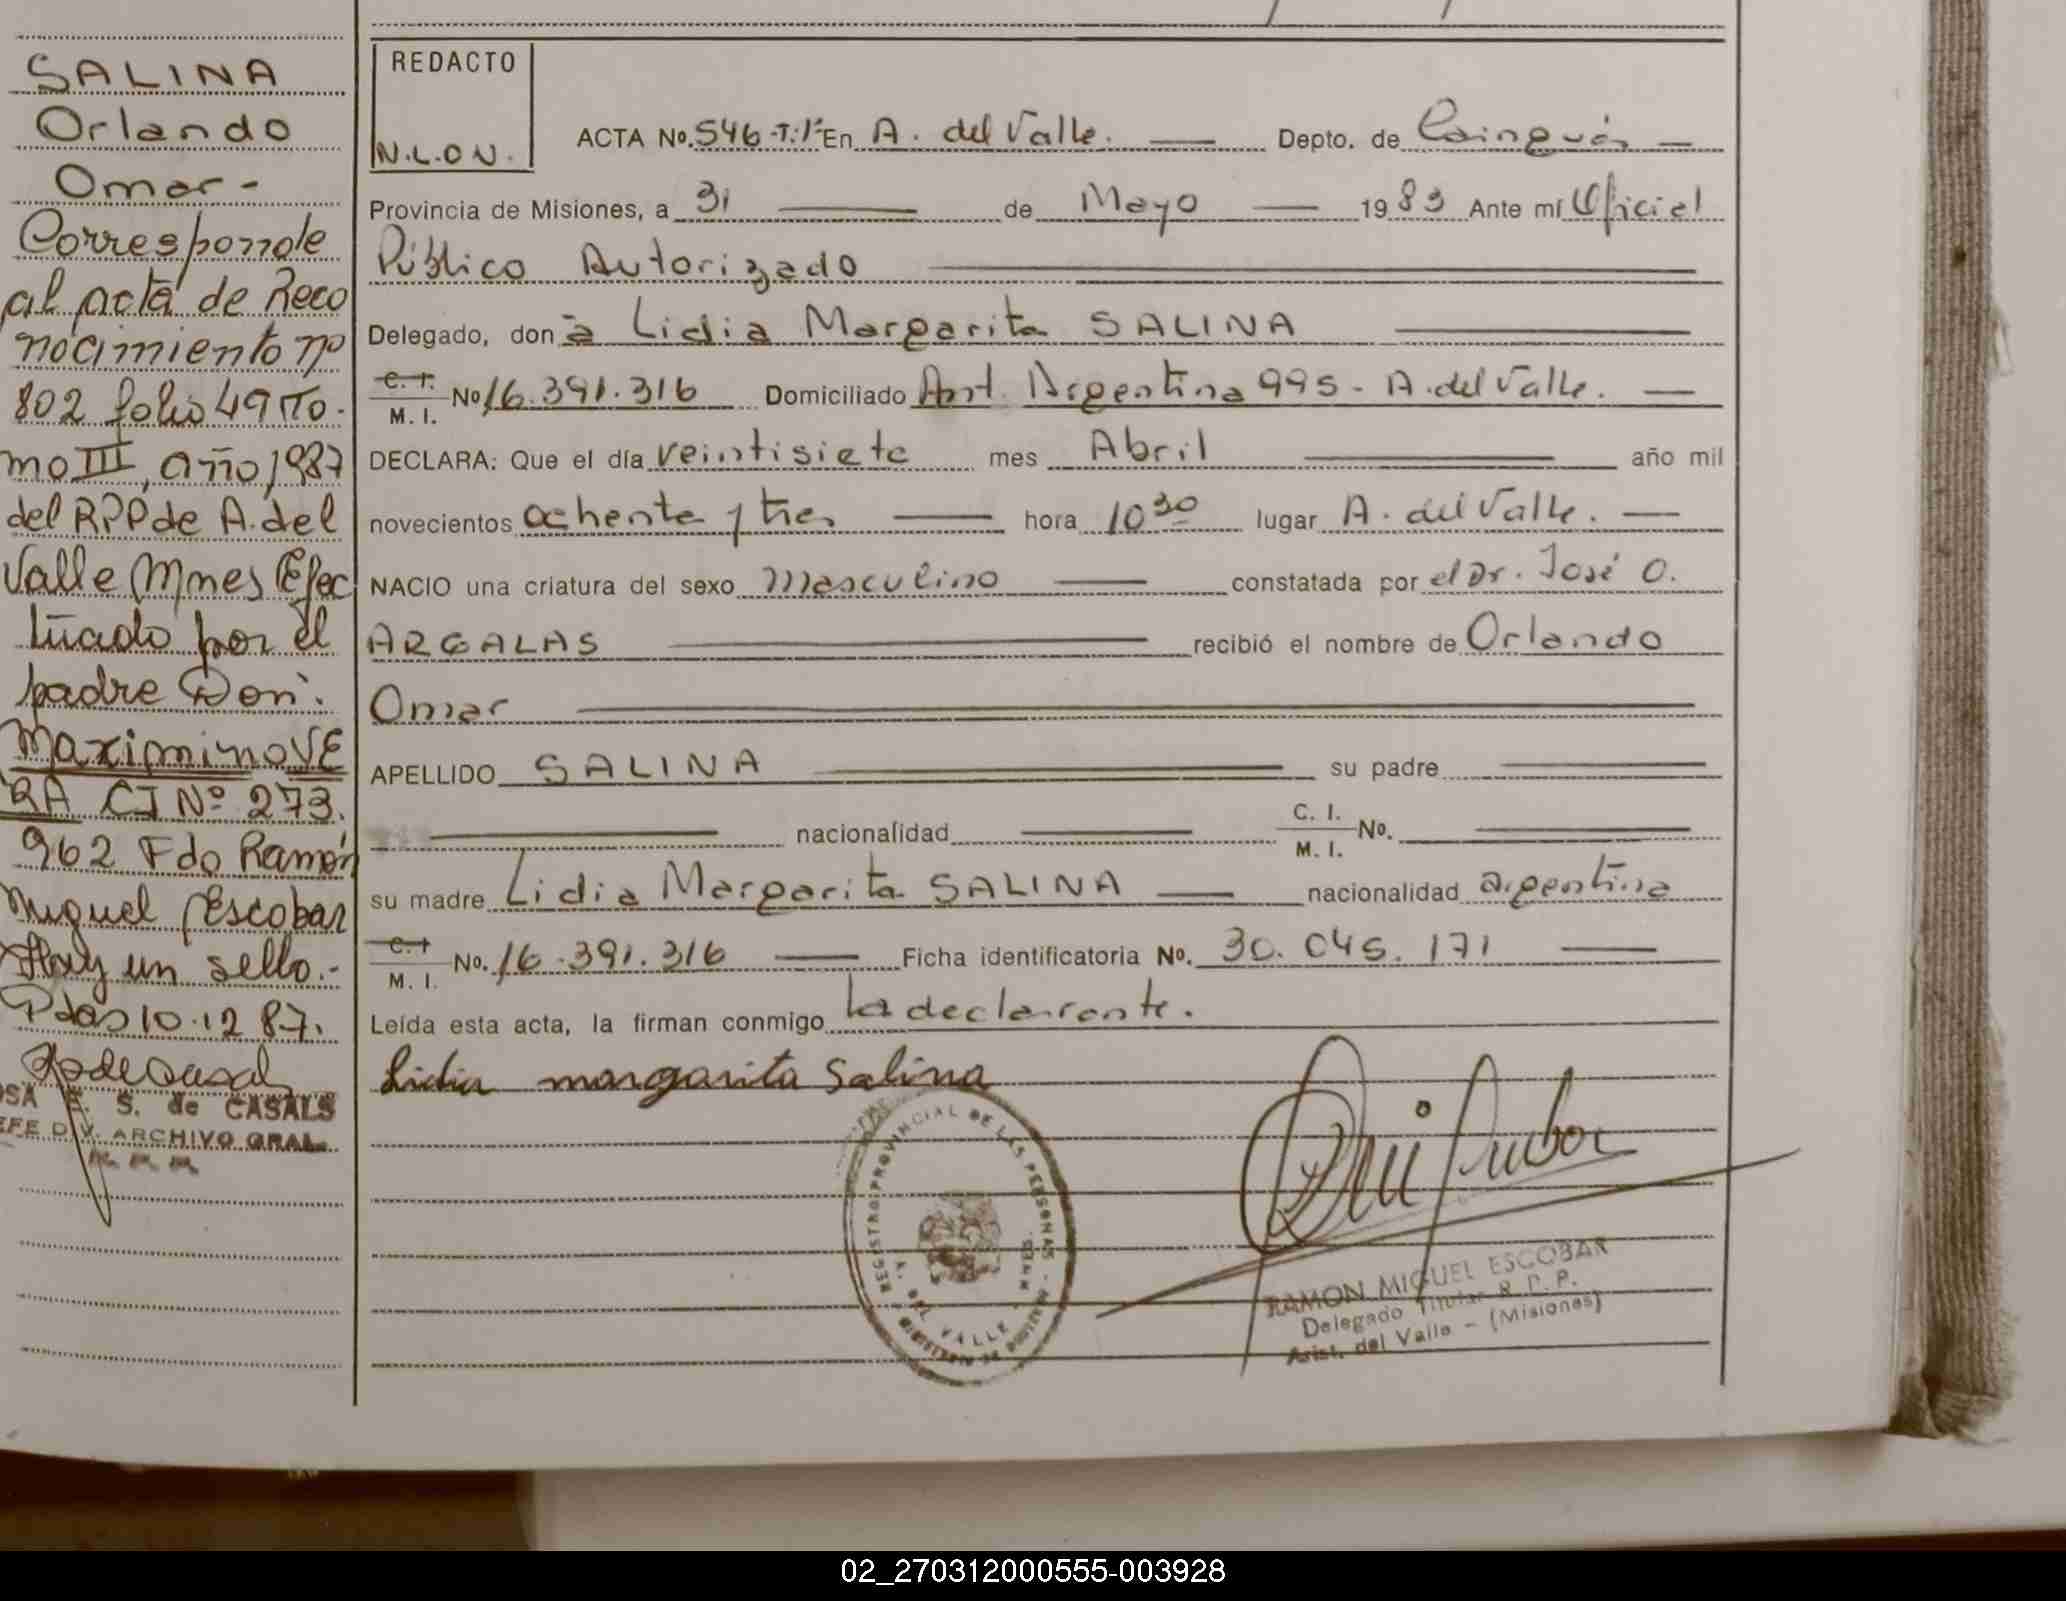 SALINA
Orlando
Omar-
Corresponde
al acta de Reco
nocimiento nº
802 folio 49 To-
mo III, año 1987
del RPP de A. del
Valle Mnes Efec
tuado por el
padre Don:
Maximino VE
RA CI Nº 273.
962 Fdo Ramón
Miguel Escobar
Hay un sello.-
Pdas 10-12 87.
S. de CASALS
ARCHIVO GRAL.
REDACTO
N.L.O N.
ACTA Nº. 546-T:1º En A. del Valle. Depto. de Cainguás
Provincia de Misiones, a 31 de Mayo 1983 Ante mí Oficial
Público Autorizado
Delegado, don a Lidia Margarita SALINA
C. I.
M. I. Nº 16.391.316 Domiciliado Ant. Argentina 995 - A. del Valle.
DECLARA: Que el día veintisiete mes Abril año mil
novecientos ochenta y tres hora 10 30 lugar A. del Valle.
NACIO una criatura del sexo Masculino constatada por el Dr. José O.
ARGALAS recibió el nombre de Orlando
Omar
APELLIDO SALINA su padre
nacionalidad C. I.
M. I. Nº.
su madre Lidia Margarita SALINA nacionalidad argentina
C. I.
M. I. Nº. 16.391.316 Ficha identificatoria Nº. 30.045.171
Leída esta acta, la firman conmigo la declarante.
Lidia margarita Salina
REGISTRO PROVINCIAL DE LAS PERSONAS
A. DEL VALLE
MNES.
RAMON MIGUEL ESCOBAR
Delegado Titular R. P. P.
Arist. del Valle - (Misiones)
02_270312000555-003928